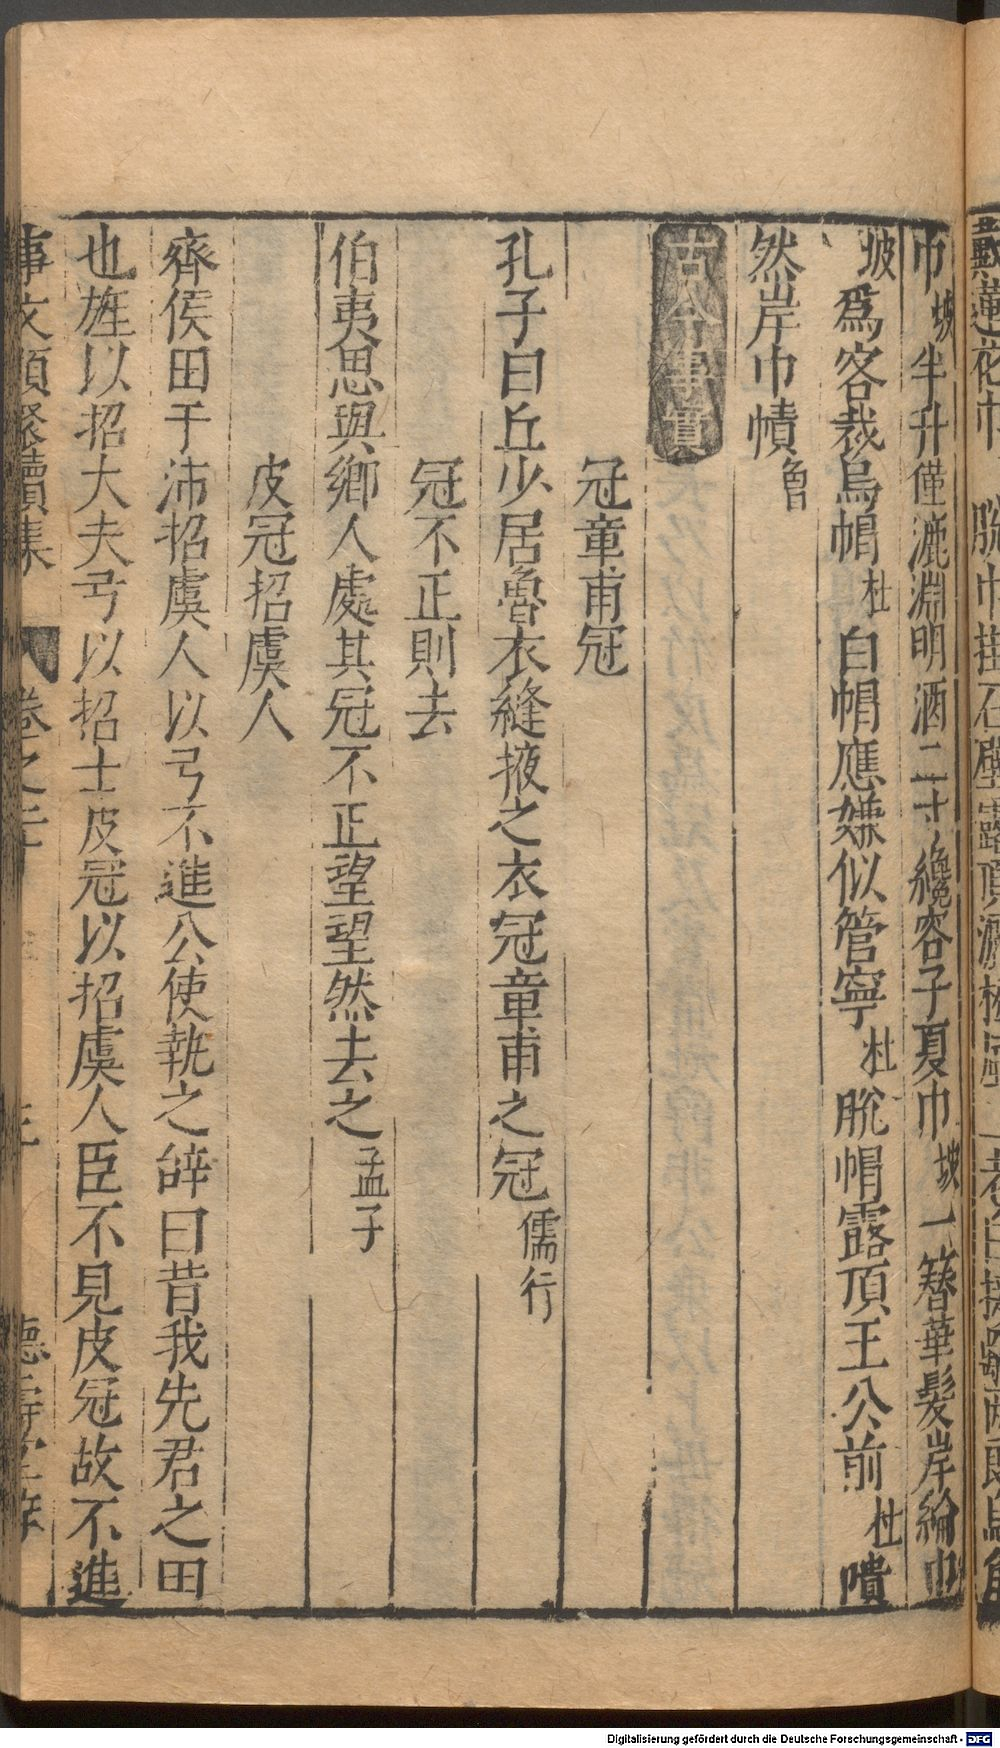 巾坡半升僅漉淵明酒二寸纔容子夏巾坡一簪華髮岸綸巾
坡爲客裁烏帽杜白帽應嫌似管寧杜脫帽露頂王公前杜嘖
然岸巾幘魯
古今事實
冠章甫冠
孔子曰丘少居魯衣縫掖之衣冠章甫之冠儒行
冠不正則去
伯夷思與鄉人處其冠不正望望然去之孟子
皮冠招虞人
齊侯田于沛招虞人以弓不進公使執之辭曰昔我先君之田
也旌以招大夫弓以招士皮冠以招虞人臣不見皮冠故不進
事文類聚續集 卷之二十 三 德壽堂梓
Digitalisierung gefördert durch die Deutsche Forschungsgemeinschaft - DFG